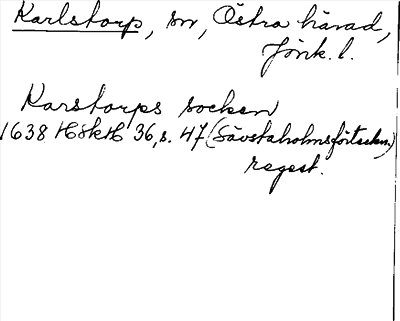 Karlstorp, sn, Östra härad,
Jönk. l.
Karstorps socken
1638 HSkH 36, s. 47 (Sävstaholmsförteckn.)
regest.